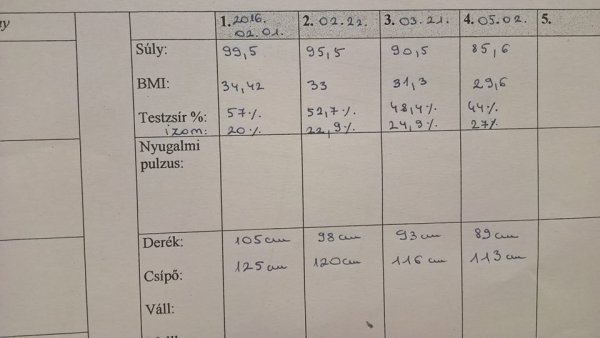 1. 2016. 02.01. 2. 02.22. 3. 03.21. 4. 05.02. 5.
Súly: 99,5 95,5 90,5 85,6
BMI: 34,42 33 31,3 29,6
Testzsír %: 57% 52,7% 48,4% 44%
izom: 20% 22,9% 24,9% 27%
Nyugalmi
pulzus:
Derék: 105cm 98cm 93cm 89cm
Csípő: 125cm 120cm 116cm 113cm
Váll: